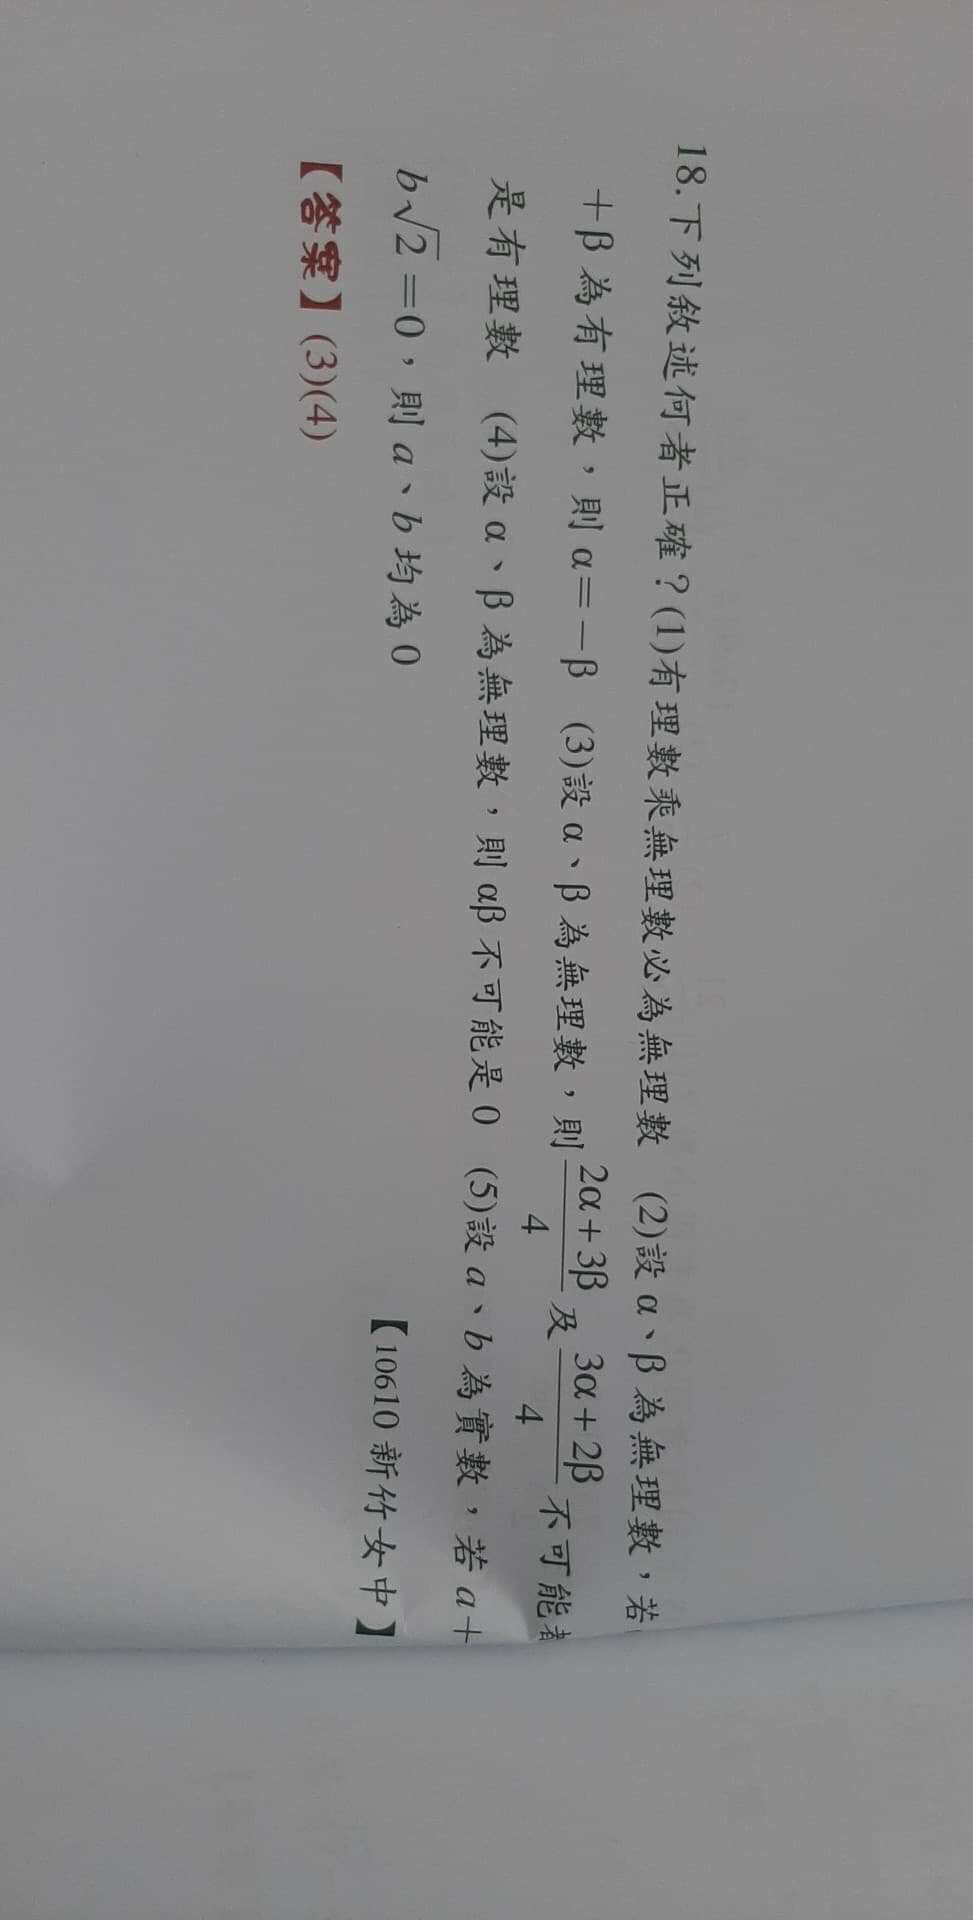 18.下列敘述何者正確？(1)有理數乘無理數必為無理數 (2)設 α、β 為無理數，若
＋β 為有理數，則 α＝－β (3)設 α、β 為無理數，則 2α＋3β/4 及 3α＋2β/4 不可能
是有理數 (4)設 α、β 為無理數，則 αβ 不可能是 0 (5)設 a、b 為實數，若 a＋
b√2＝0，則 a、b 均為 0
【10610 新竹女中】
【答案】(3)(4)